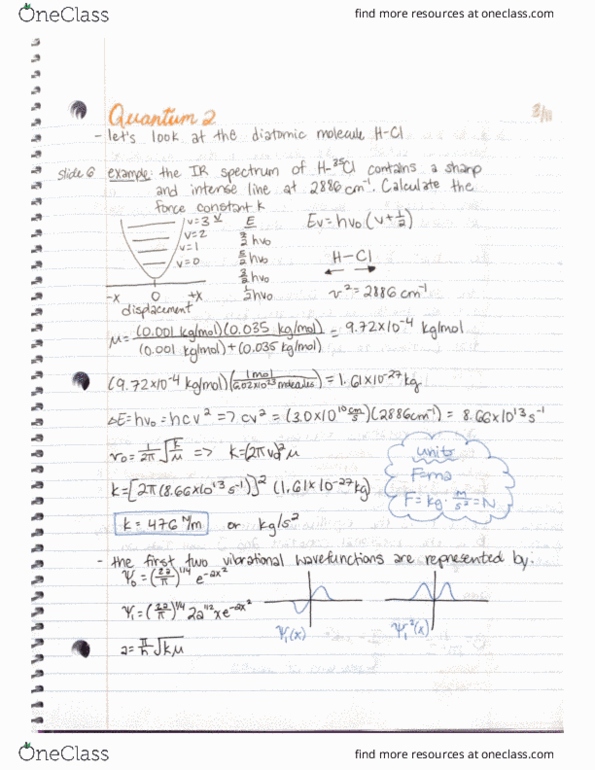 OneClass
find more resources at oneclass.com
Quantum 2
3/11
- let's look at the diatomic molecule H-Cl
slide 6 example: the IR spectrum of H-³⁵Cl contains a sharp
and intense line at 2886 cm⁻¹. Calculate the
force constant k
v=3 E
v=2 7/2 hv₀
v=1 5/2 hv₀
v=0 3/2 hv₀
1/2 hv₀
Ev = hv₀ (v+1/2)
H-Cl
v² = 2886 cm⁻¹
-x 0 +x
displacement
μ = (0.001 kg/mol)(0.035 kg/mol) / (0.001 kg/mol)+(0.035 kg/mol) = 9.72x10⁻⁴ kg/mol
(9.72x10⁻⁴ kg/mol)(1 mol / 6.02x10²³ molecules) = 1.61x10⁻²⁷ kg
ΔE = hv₀ = hcv² => cv² = (3.0x10¹⁰ cm/s)(2886cm⁻¹) = 8.66x10¹³ s⁻¹
v₀ = 1/2π √k/μ => k=(2πv₀)²μ
k=[2π(8.66x10¹³ s⁻¹)]² (1.61x10⁻²⁷ kg)
k = 476 N/m or kg/s²
units
F=ma
F = kg · m/s² = N
- the first two vibrational wavefunctions are represented by:
Ψ₀ = (2a/π)^1/4 e^-ax²
Ψ₁ = (2a/π)^1/4 2a^1/2 x e^-ax²
a = π/h √kμ
Ψ₁(x)
Ψ₁²(x)
OneClass
find more resources at oneclass.com